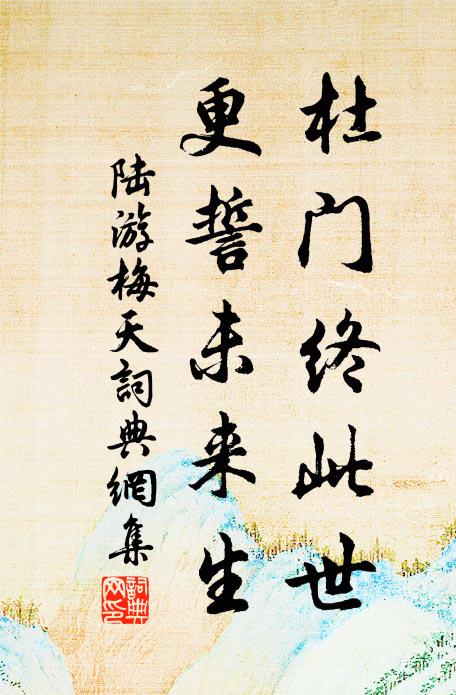 杜门终此世
更誓未来生
陆游梅天詞典網集
詞典